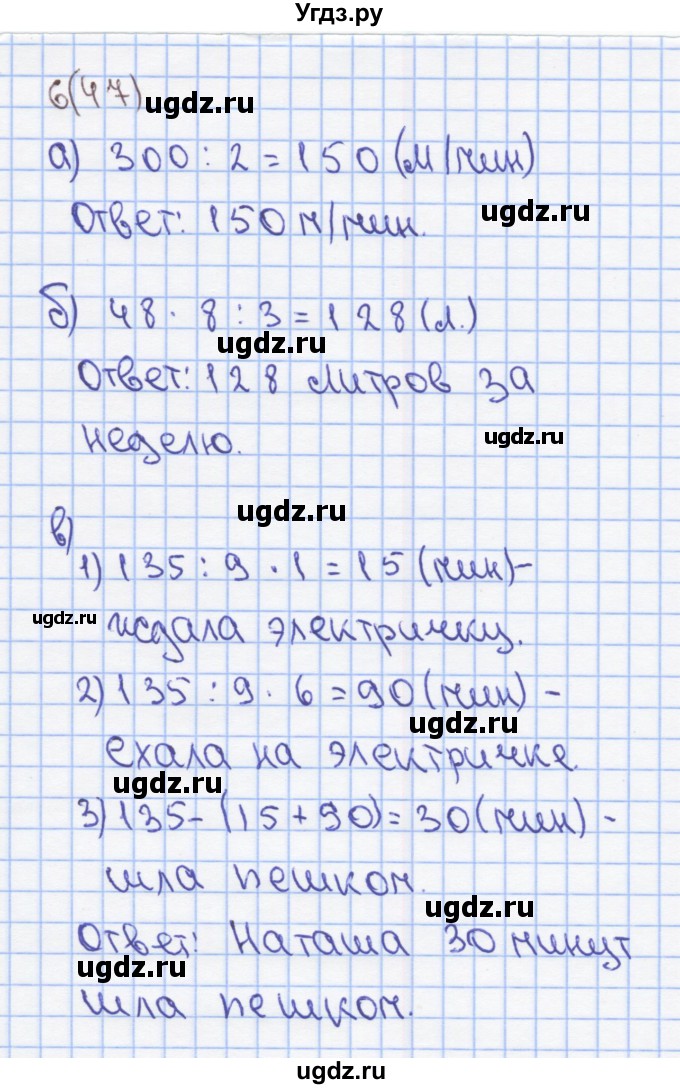 Угдз.ру
6(47)
ugdz.ru
а) 300 : 2 = 150 (м/мин)
ugdz.ru
Ответ: 150 м/мин.
б) 48 · 8 : 3 = 128 (л.)
ugdz.ru
Ответ: 128 литров за
ugdz.ru
неделю.
ugdz.ru
в)
1) 135 : 9 · 1 = 15 (мин) -
ugdz.ru
ждала электричку.
2) 135 : 9 · 6 = 90 (мин) -
ugdz.ru
ехала на электричке.
ugdz.ru
3) 135 - (15 + 90) = 30 (мин) -
шла пешком.
ugdz.ru
Ответ: Наташа 30 минут
ugdz.ru
шла пешком.
ugdz.ru